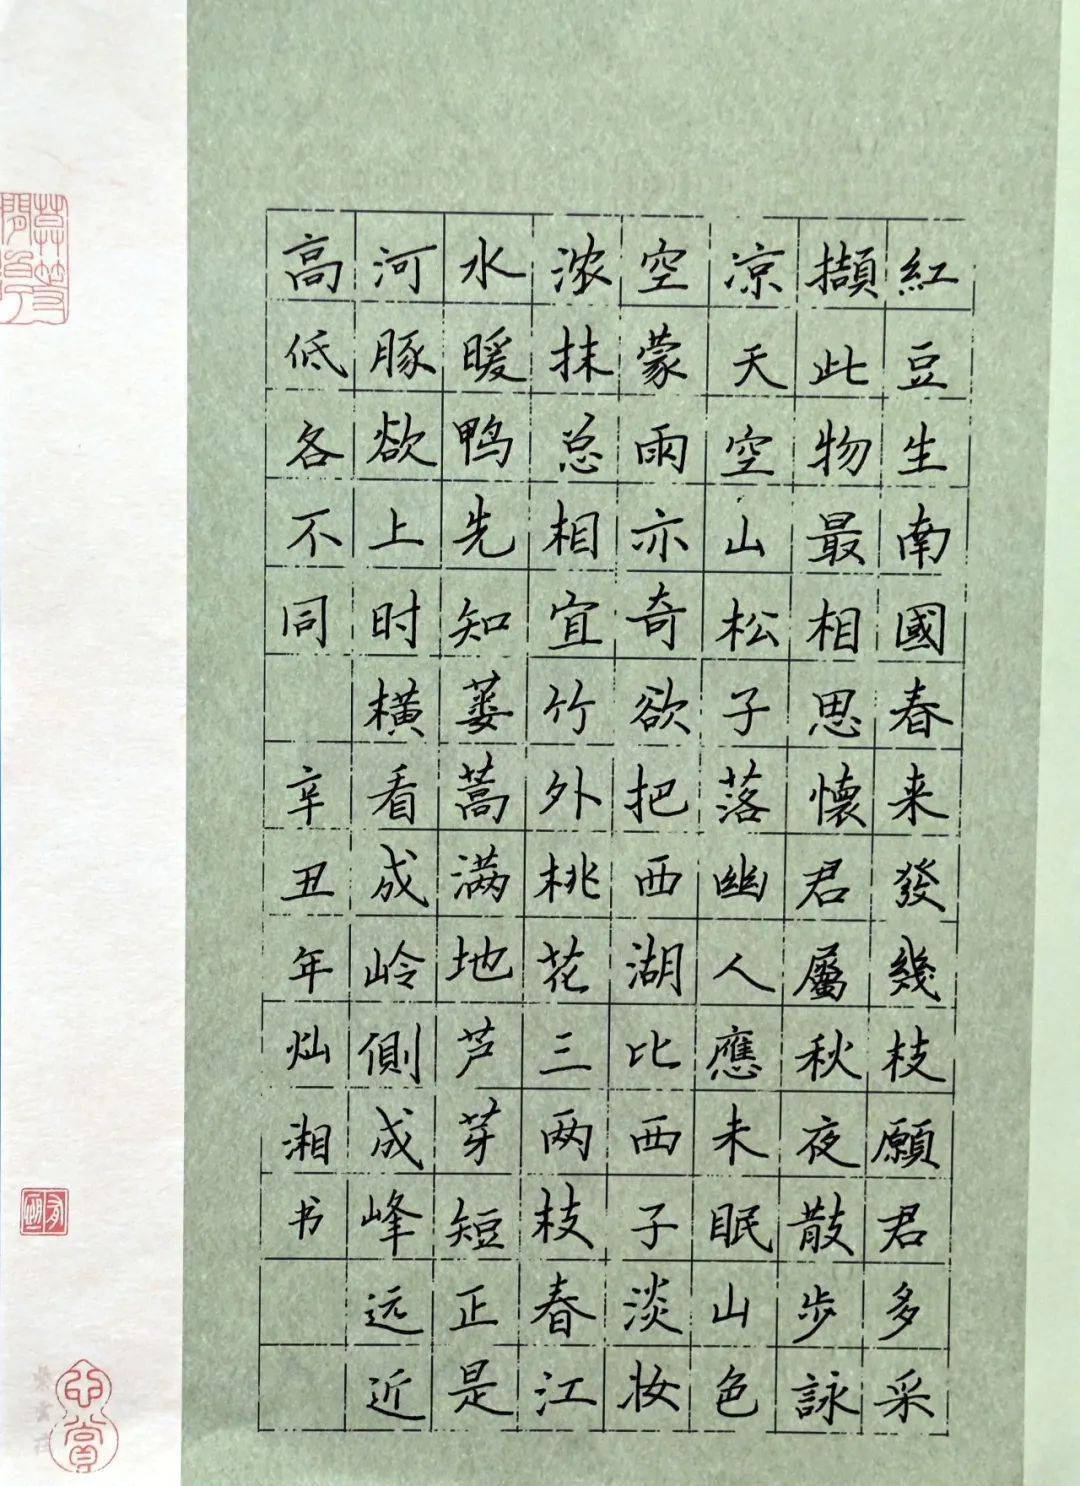 紅豆生南國春来發幾枝願君多采
擷此物最相思懷君屬秋夜散步詠
凉天空山松子落幽人應未眠山色
空蒙雨亦奇欲把西湖比西子淡妆
浓抹总相宜竹外桃花三两枝春江
水暖鸭先知蒌蒿满地芦芽短正是
河豚欲上时横看成岭側成峰远近
高低各不同 辛丑年灿湘书